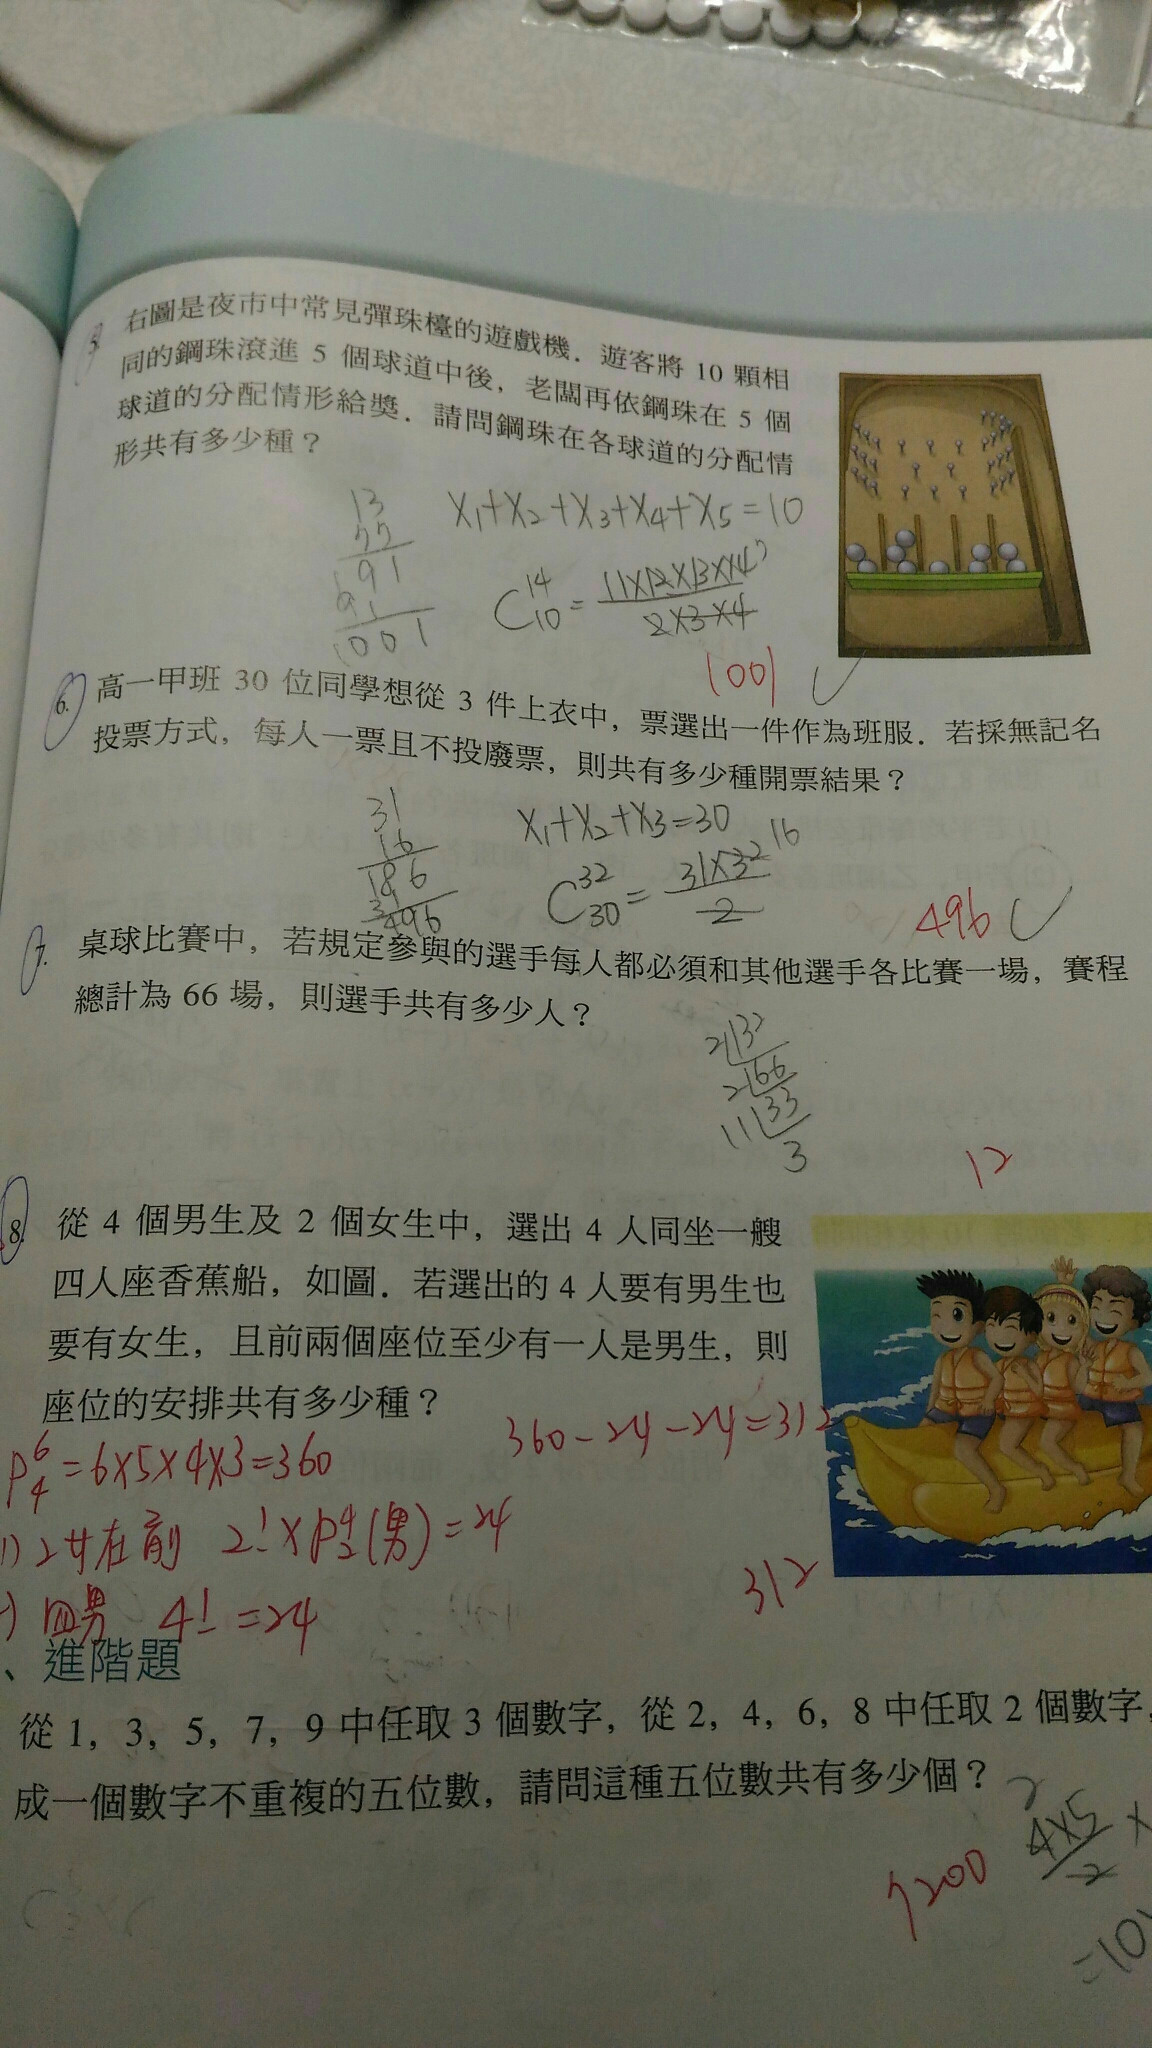 5. 右圖是夜市中常見彈珠檯的遊戲機．遊客將 10 顆相
同的鋼珠滾進 5 個球道中後，老闆再依鋼珠在 5 個
球道的分配情形給獎．請問鋼珠在各球道的分配情
形共有多少種？
13
77
91
91
1001
X₁+X₂+X₃+X₄+X₅=10
C¹⁴₁₀ = 11×12×13×14 7
2×3×4
1001 ✓
6. 高一甲班 30 位同學想從 3 件上衣中，票選出一件作為班服．若採無記名
投票方式，每人一票且不投廢票，則共有多少種開票結果？
31
16
186
31
496
X₁+X₂+X₃=30
C³²₃₀ = 31×32 16
2
496 ✓
7. 桌球比賽中，若規定參與的選手每人都必須和其他選手各比賽一場，賽程
總計為 66 場，則選手共有多少人？
2 132
2 66
11 33
3
12
8. 從 4 個男生及 2 個女生中，選出 4 人同坐一艘
四人座香蕉船，如圖．若選出的 4 人要有男生也
要有女生，且前兩個座位至少有一人是男生，則
座位的安排共有多少種？
360-24-24=312
P⁶₄ =6×5×4×3=360
1) 2女在前 2!×P⁴₂(男)=24
) 四男 4! =24
312
、進階題
從 1，3，5，7，9 中任取 3 個數字，從 2，4，6，8 中任取 2 個數字，
成一個數字不重複的五位數，請問這種五位數共有多少個？
7200
2
4×5 ×
2
=10